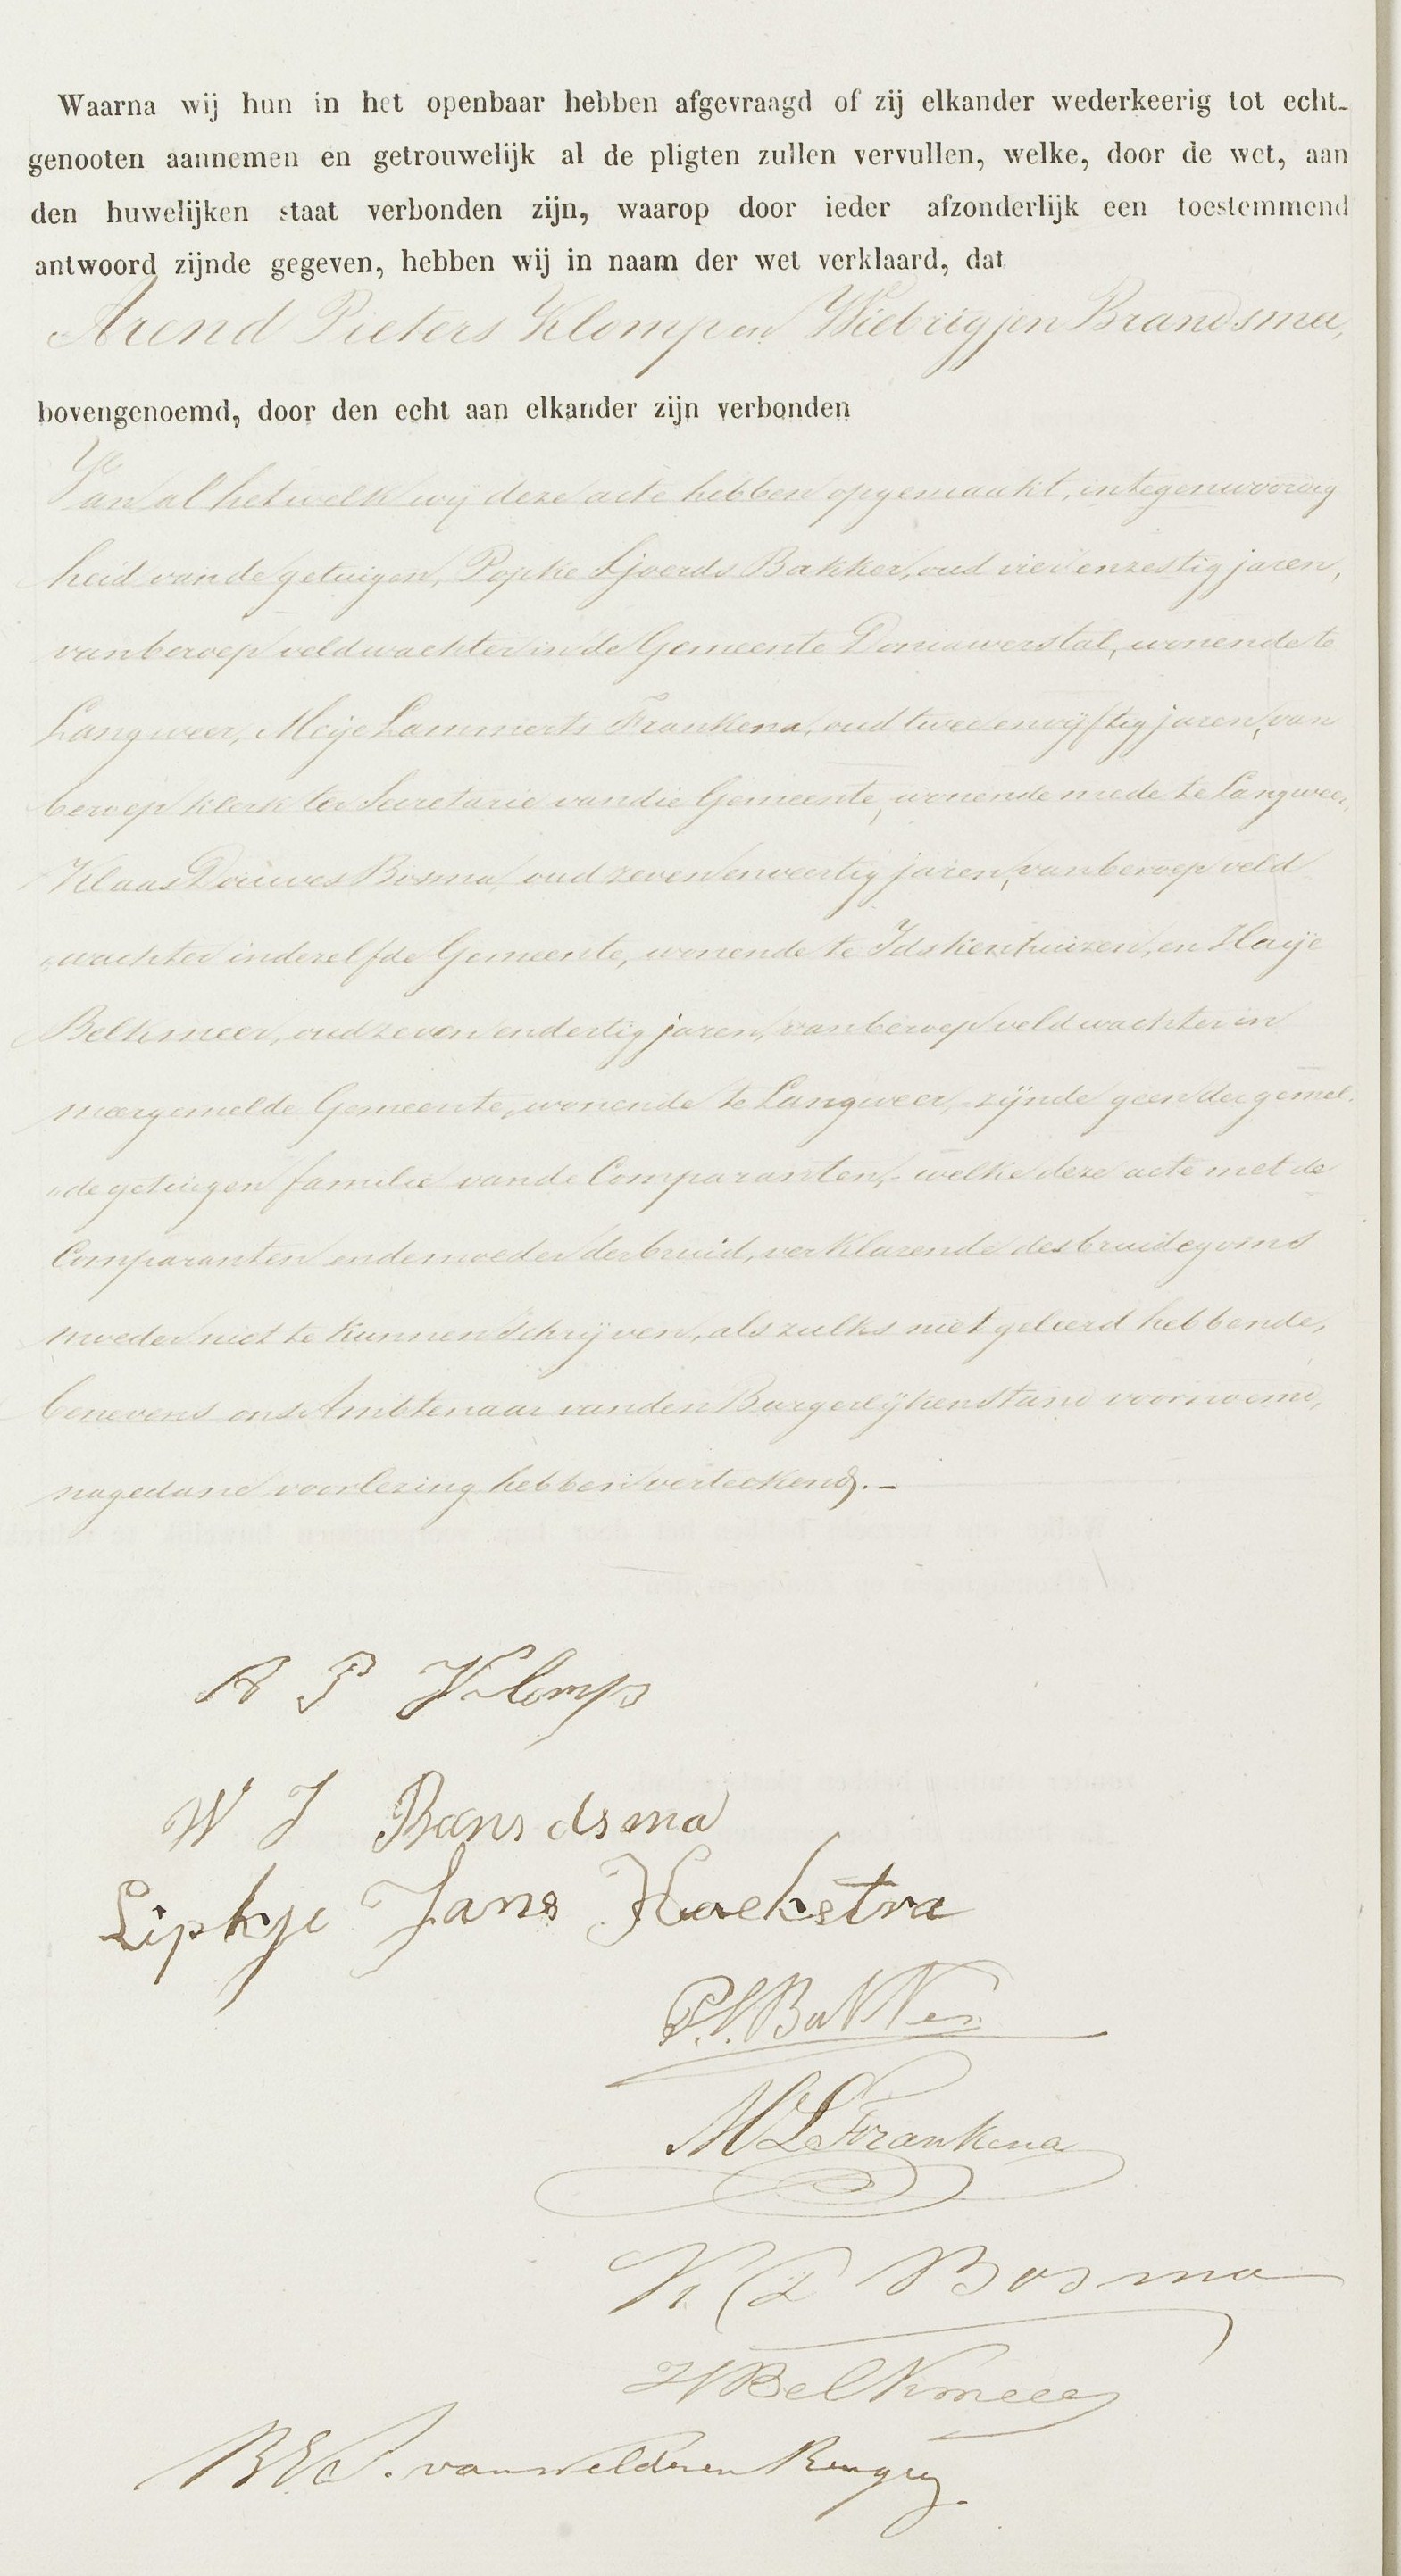 Waarna wij hun in het openbaar hebben afgevraagd of zij elkander wederkeerig tot echt-
genooten aannemen en getrouwelijk al de pligten zullen vervullen, welke, door de wet, aan
den huwelijken staat verbonden zijn, waarop door ieder afzonderlijk een toestemmend
antwoord zijnde gegeven, hebben wij in naam der wet verklaard, dat
Arend Pieters Klomp en Wiebrigjen Brandsma,
bovengenoemd, door den echt aan elkander zijn verbonden
Van al hetwelk wij deze acte hebben opgemaakt, in tegenwoordig
heid van de getuigen, Popke Sjoerds Bakker, oud vier en zestig jaren,
van beroep veldwachter in de Gemeente Doniawerstal, wonende te
Langweer, Meije Lammerts Frankena, oud twee en vijftig jaren, van
beroep klerk ter Secretarie van die Gemeente, wonende mede te Langweer,
Klaas Douwes Bosma, oud zeven en veertig jaren, van beroep veld
wachter in dezelfde Gemeente, wonende te Idskenhuizen, en Haije
Belkmeer, oud zeven en dertig jaren, van beroep veldwachter in
meergemelde Gemeente, wonende te Langweer, zijnde geen der gemel
de getuigen familie van de Comparanten, - welke deze acte met de
Comparanten en de moeder der bruid, verklarende des bruidegoms
moeder niet te kunnen schrijven, als zulks niet geleerd hebbende,
benevens ons Ambtenaar van den Burgerlijken Stand voornoemd,
na gedane voorlezing hebben verteekend. -
A P Klomp
W J Bransdsma
Lipkje Jans Hoekstra
P. S. Bakker
M L Frankena
K D Bosma
H Belkmeer
van Welderen Rengers